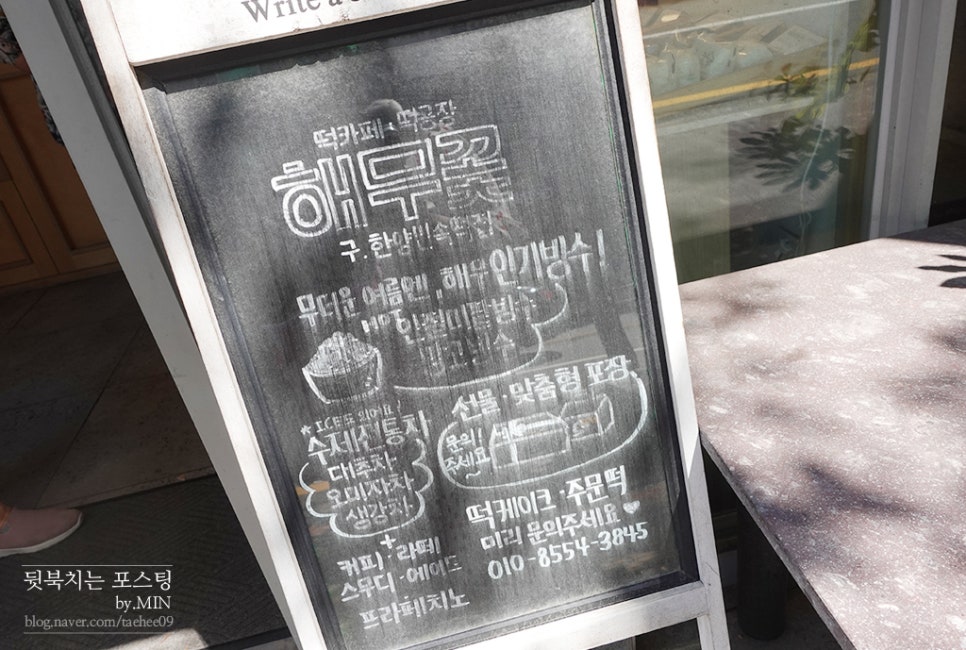 Write a
떡카페·떡공장
해무꽃
구.한양민속떡집
무더운 여름엔, 해무 인기빙수!
HOT
인절미팥빙수
망고빙수
선물·맞춤형 포장
문의!
주세요~
* ICE도 있어요
수제전통차
대추차
오미자차
생강차
+
커피·라떼
스무디·에이드
프라페치노
떡케이크·주문떡
미리 문의주세요♥
010-8554-3845
뒷북치는 포스팅
by.MIN
blog.naver.com/taehee09